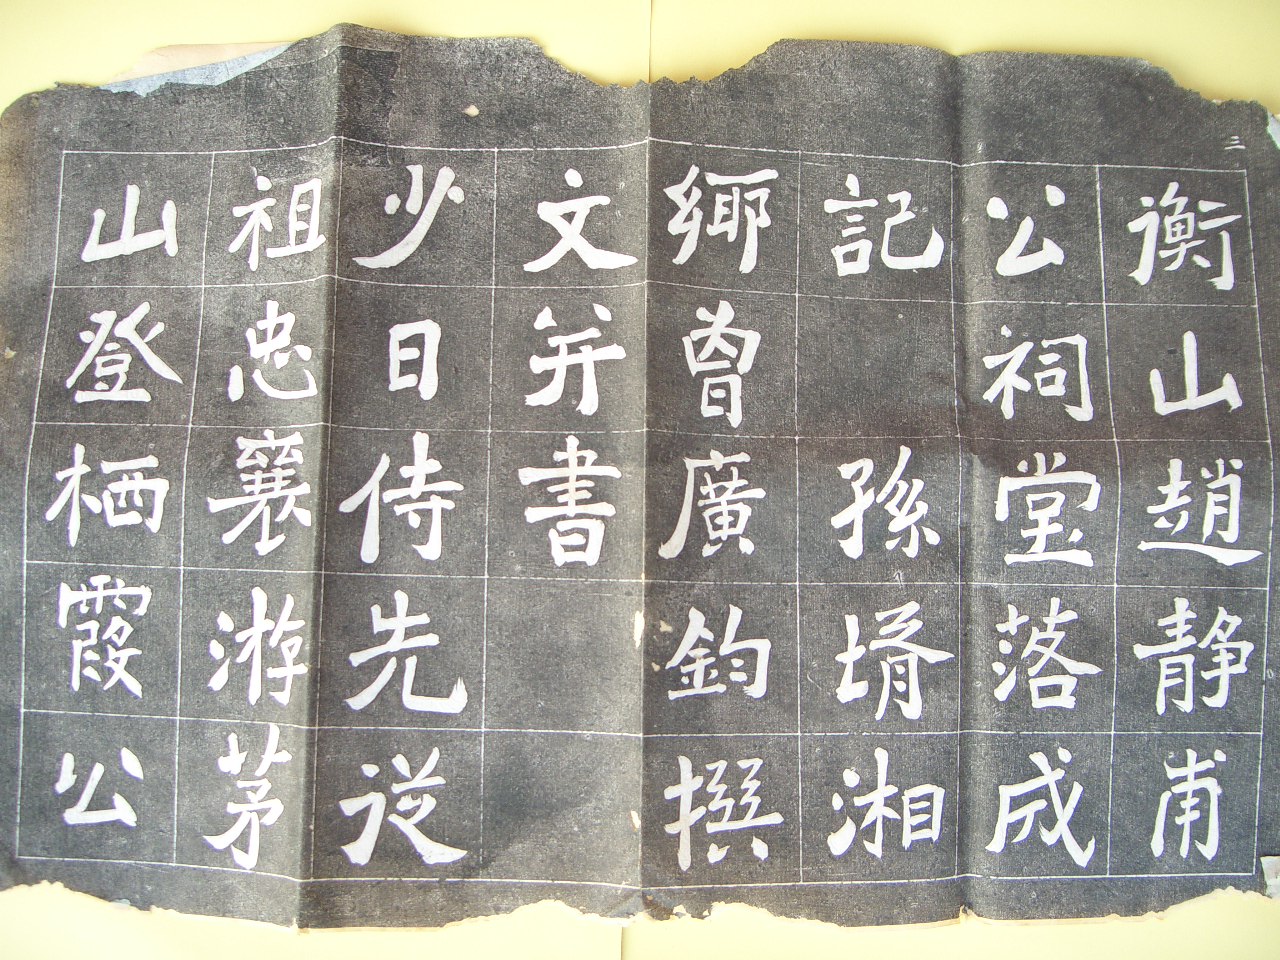 三
衡山趙靜甫
公祠堂落成
記 孫壻湘
鄉曾廣鈞撰
文并書
少日侍先從
祖忠襄游茅
山登栖霞公